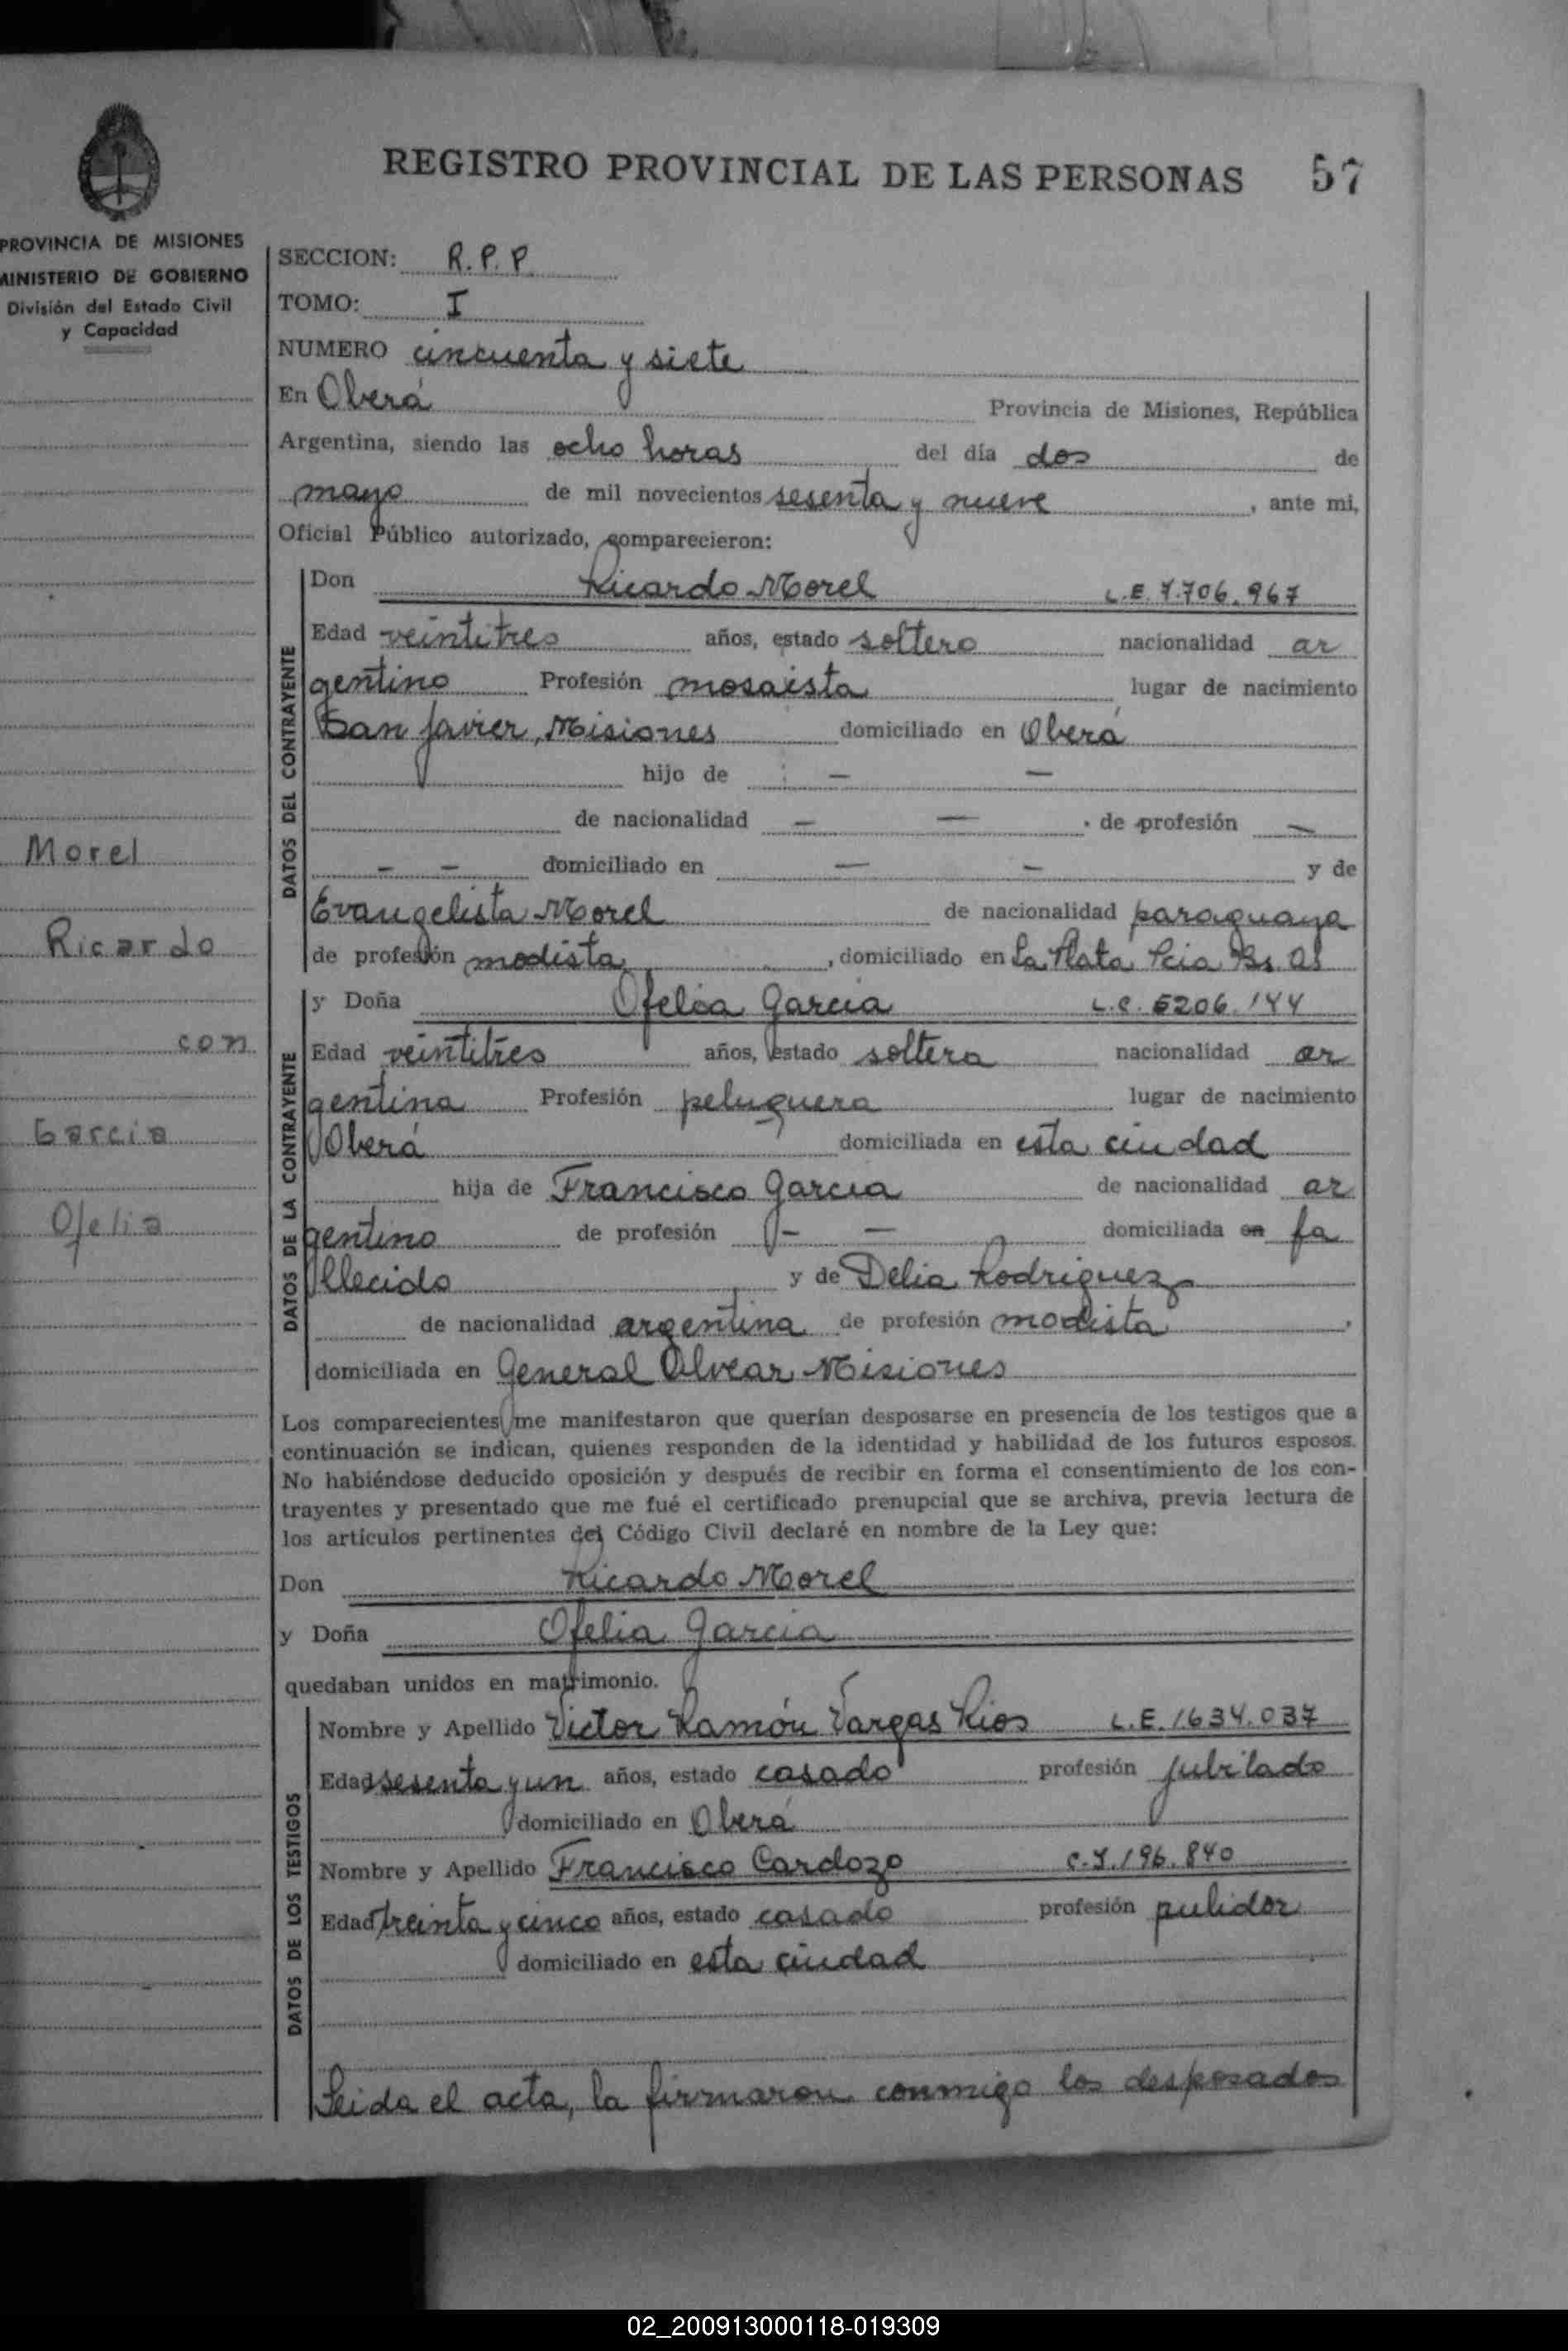 REGISTRO PROVINCIAL DE LAS PERSONAS 57
PROVINCIA DE MISIONES
MINISTERIO DE GOBIERNO
División del Estado Civil
y Capacidad
Morel
Ricardo
con
Garcia
Ofelia
SECCION: R.P.P.
TOMO: I
NUMERO cincuenta y siete
En Oberá Provincia de Misiones, República
Argentina, siendo las ocho horas del día dos de
mayo de mil novecientos sesenta y nueve, ante mi,
Oficial Público autorizado, comparecieron:
DATOS DEL CONTRAYENTE
Don Ricardo Morel L.E. 7.706.967
Edad veintitres años, estado soltero nacionalidad ar
gentino Profesión mosaista lugar de nacimiento
San Javier, Misiones domiciliado en Oberá
hijo de — —
de nacionalidad — — de profesión —
— — domiciliado en — — y de
Evangelista Morel de nacionalidad paraguaya
de profesión modista, domiciliado en La Plata Pcia Bs. As
DATOS DE LA CONTRAYENTE
y Doña Ofelia Garcia L.C. 6206.144
Edad veintitres años, estado soltera nacionalidad ar
gentina Profesión peluquera lugar de nacimiento
Oberá domiciliada en esta ciudad
hija de Francisco Garcia de nacionalidad ar
gentino de profesión — — domiciliada en fa
llecido y de Delia Rodriguez
de nacionalidad argentina de profesión modista,
domiciliada en General Alvear Misiones
Los comparecientes me manifestaron que querían desposarse en presencia de los testigos que a
continuación se indican, quienes responden de la identidad y habilidad de los futuros esposos.
No habiéndose deducido oposición y después de recibir en forma el consentimiento de los con-
trayentes y presentado que me fué el certificado prenupcial que se archiva, previa lectura de
los artículos pertinentes del Código Civil declaré en nombre de la Ley que:
Don Ricardo Morel
y Doña Ofelia Garcia
quedaban unidos en matrimonio.
DATOS DE LOS TESTIGOS
Nombre y Apellido Victor Ramón Vargas Rios L.E. 1634.037
Edad sesenta y un años, estado casado profesión jubilado
domiciliado en Oberá
Nombre y Apellido Francisco Cardozo C.I. 196.840
Edad treinta y cinco años, estado casado profesión pulidor
domiciliado en esta ciudad
Leida el acta, la firmaron conmigo los desposados
02_200913000118-019309